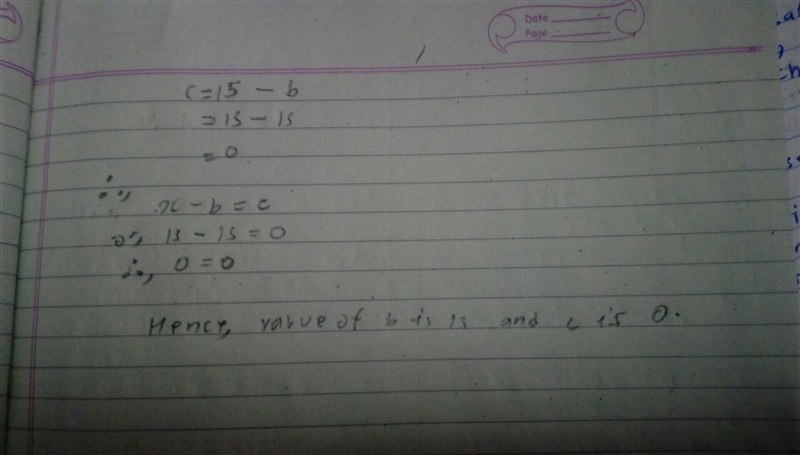 Date
Page
c = 15 - b
= 15 - 15
= 0
∴, x - b = c
or, 15 - 15 = 0
∴, 0 = 0
Hence, value of b is 15 and c is 0.